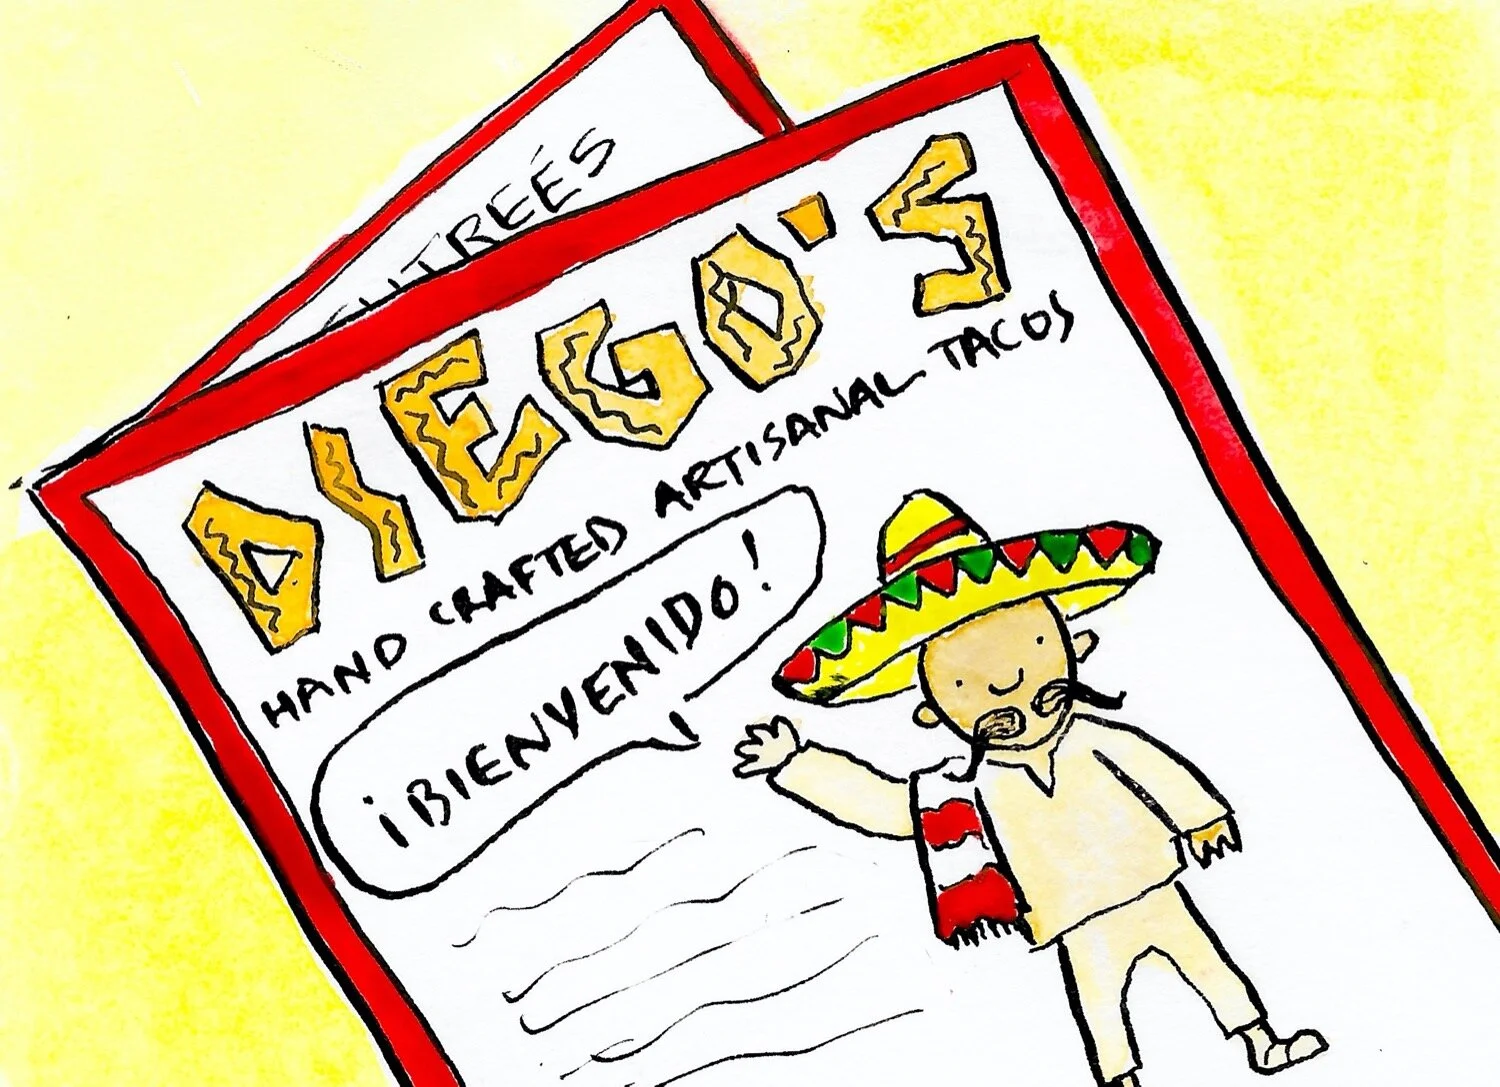 ENTREÉS
DIEGO'S
HAND CRAFTED ARTISANAL TACOS
¡BIENVENIDO!